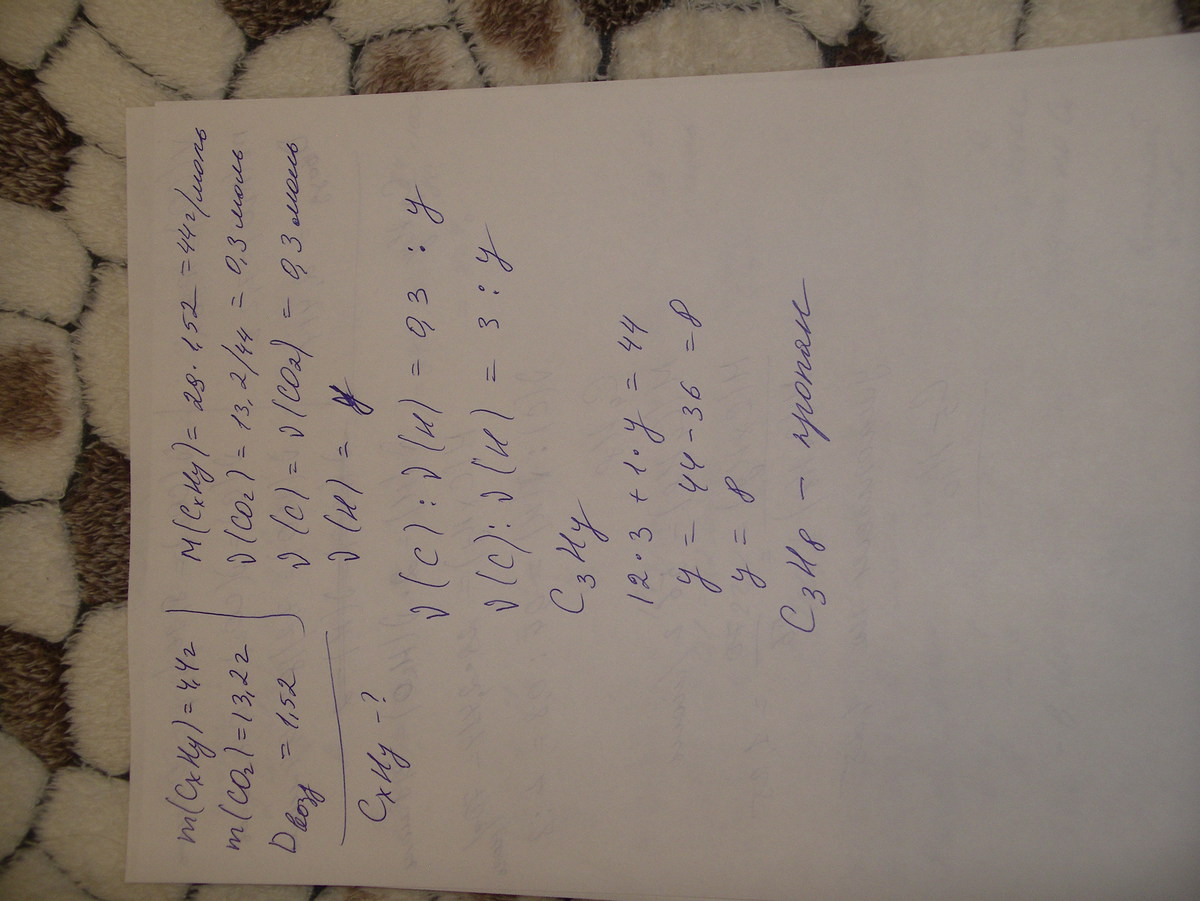 m(CxHy) = 4,4г
m(CO2) = 13,2г
Dвозд = 1,52
CxHy - ?
M(CxHy) = 29 · 1,52 = 44г/моль
ν(CO2) = 13,2/44 = 0,3 моль
ν(C) = ν(CO2) = 0,3 моль
ν(H) = y
ν(C) : ν(H) = 0,3 : y
ν(C) : ν(H) = 3 : y
C3Hy
12 · 3 + 1 · y = 44
y = 44 - 36 = 8
y = 8
C3H8 - пропан